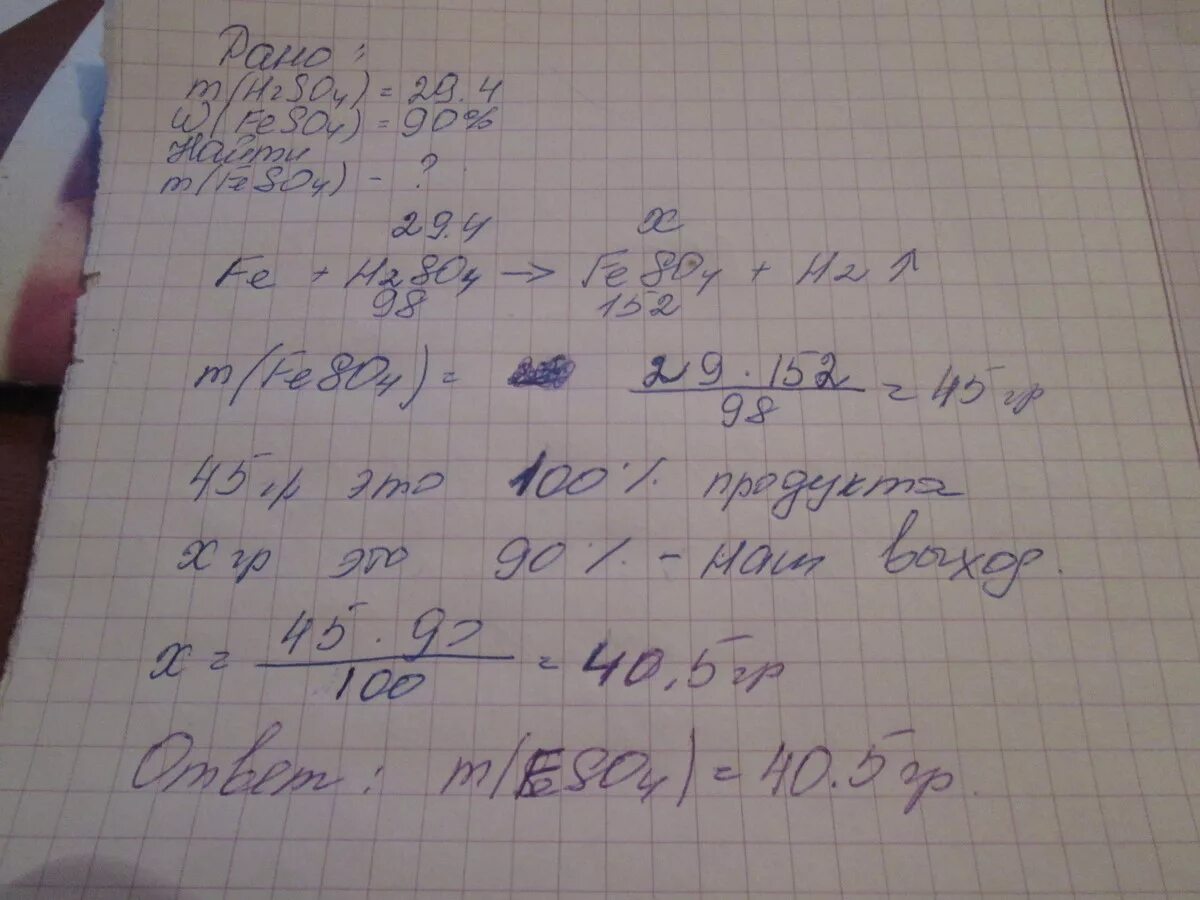 Дано:
m(H2SO4) = 29.4
W(FeSO4) = 90%
Найти
m(FeSO4) - ?
29.4 x
Fe + H2SO4 → FeSO4 + H2↑
98 152
m(FeSO4) = 29 · 152 / 98 = 45 гр
45 гр это 100% продукта
x гр это 90% - наш выход.
x = 45 · 90 / 100 = 40,5 гр
Ответ: m(FeSO4) = 40.5 гр.